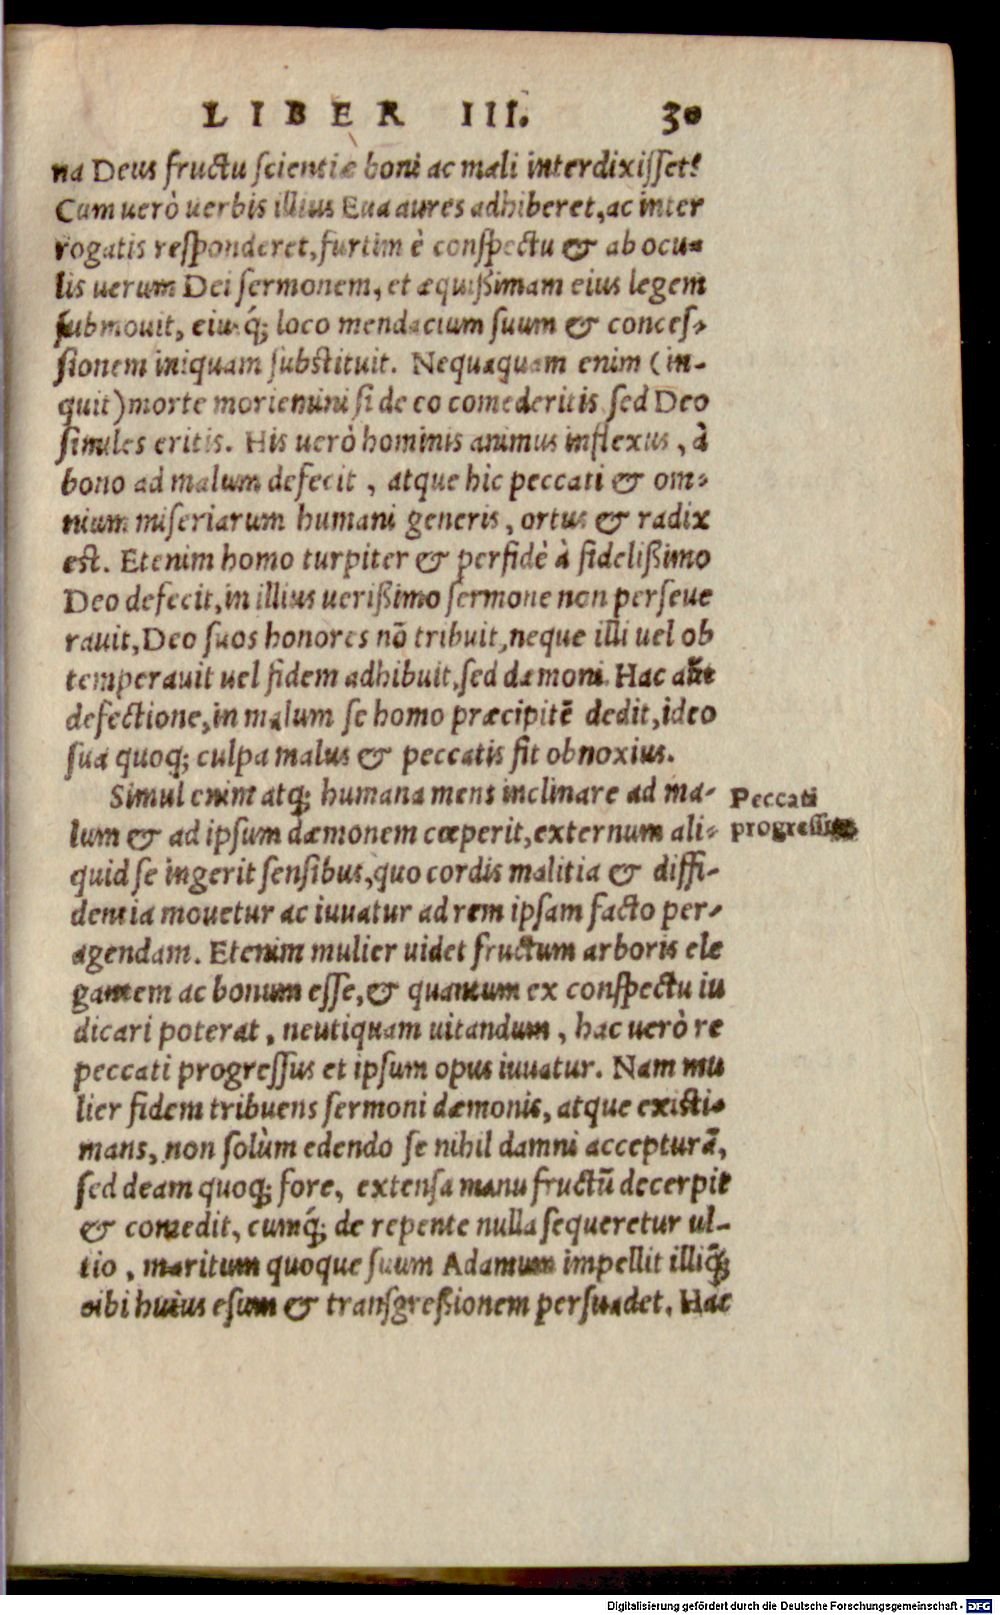 LIBER III. 30
na Deus fructu scientiæ boni ac mali interdixisset?
Cum uerò uerbis illius Eua aures adhiberet, ac inter
rogatis responderet, furtim è conspectu & ab ocu-
lis uerum Dei sermonem, et æquißimam eius legem
submouit, eiusq́; loco mendacium suum & conces-
sionem iniquam substituit. Nequaquam enim (in-
quit) morte moriemini si de eo comederitis sed Deo
similes eritis. His uerò hominis animus inflexus, à
bono ad malum defecit, atque hic peccati & om-
nium miseriarum humani generis, ortus & radix
est. Etenim homo turpiter & perfidè à fidelißimo
Deo defecit, in illius uerißimo sermone non perseue
rauit, Deo suos honores nō tribuit, neque illi uel ob
temperauit uel fidem adhibuit, sed dæmoni. Hac aūt
defectione, in malum se homo præcipitē dedit, ideo
sua quoq; culpa malus & peccatis fit obnoxius.
Simul enim atq; humana mens inclinare ad ma-
lum & ad ipsum dæmonem cœperit, externum ali-
quid se ingerit sensibus, quo cordis malitia & diffi-
dentia mouetur ac iuuatur ad rem ipsam facto per-
agendam. Etenim mulier uidet fructum arboris ele
gantem ac bonum esse, & quantum ex conspectu iu
dicari poterat, neutiquam uitandum, hac uerò re
peccati progressus et ipsum opus iuuatur. Nam mu
lier fidem tribuens sermoni dæmonis, atque existi-
mans, non solùm edendo se nihil damni accepturā,
sed deam quoq; fore, extensa manu fructū decerpit
& comedit, cumq́; de repente nulla sequeretur ul-
tio, maritum quoque suum Adamum impellit illiq́;
cibi huius esum & transgreßionem persuadet. Hac
Peccati
progressus
Digitalisierung gefördert durch die Deutsche Forschungsgemeinschaft - DFG